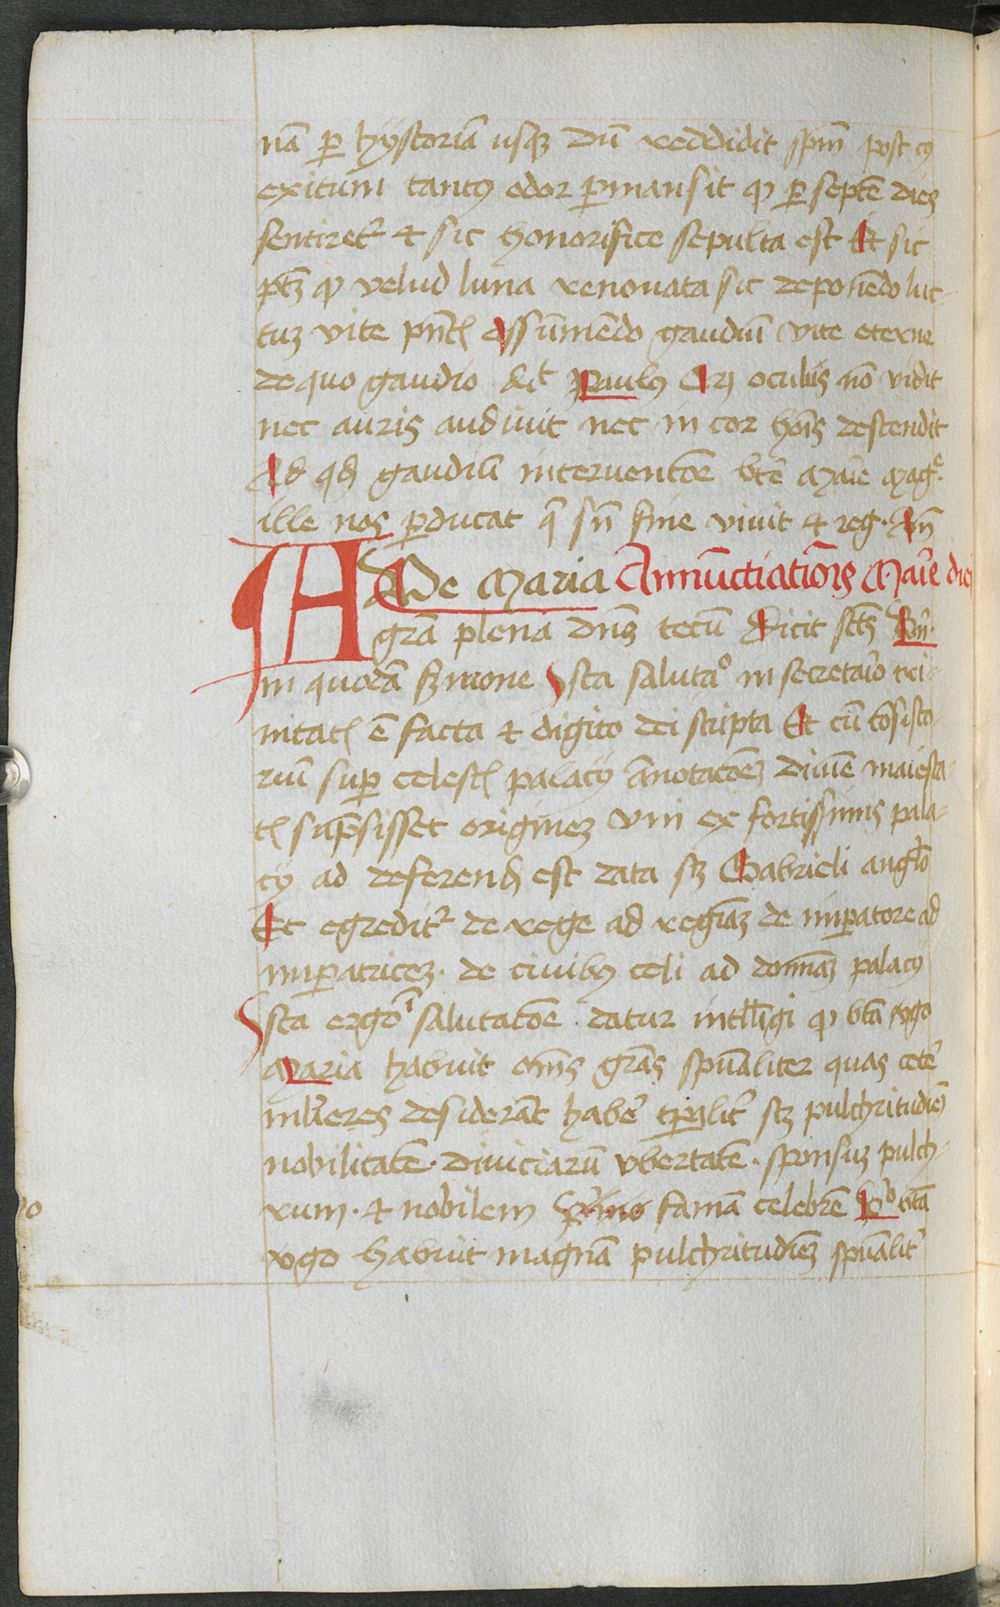 nā p hystoriā usqȝ dū reddidit spm̄ post cꝰ
exitum tantꝰ odor pmansit ꝙ p septē dies
sentiret᷑ et sic honorifice sepulta est Et sic
ptȝ ꝙ velud luna renouata sic deponēdo luc-
tuȝ vite pn̄tꝭ assumēdo gaudiū vite eterne
de quo gaudio dīt Paulꝰ Qꝛ oculus nō vidit
nec auris audiuit nec in cor hoīs descendit
Ad qđ gaudiū interuentōe btē Marie mag.ᵉ
ille nos pducat q̄ sn̄ fine viuit et reg. Am̄
AUe Maria Annūctiatiōis Marie dici
grā plena dn̄s tecū Dicit sct̄s Bn̄.
in quodā sermone Ista salutaᵒ in secretaīo tri-
nitatꝭ ē facta et digito dei scripta Et cū cōsisto-
riū sup celestꝭ palacij ānotacōeȝ diuīe maiesta-
tꝭ sūpsisset origineȝ vni ex fortissimis pala-
cij ad deferend̄ est data sȝ Gabrieli angl̄o
Et egredit᷑ de rege ad reginaȝ de impatore ad
impatriceȝ. de ciuibꝰ celi ad domināȝ palacij
Ista ergo ī salutatōe. datur intll̄igi ꝙ btā vgo
Maria habuit om̄s grās spūaliter quas cetē
ml̄ieres desiderāt habē tpalit̄ sȝ pulchritudinē
nobilitatē. diuiciarū vbertatē. sponsuȝ pulch-
rum. et nobilem famā celebrē btā
vgo habuit magnā pulchritudinēȝ spūalit᷑